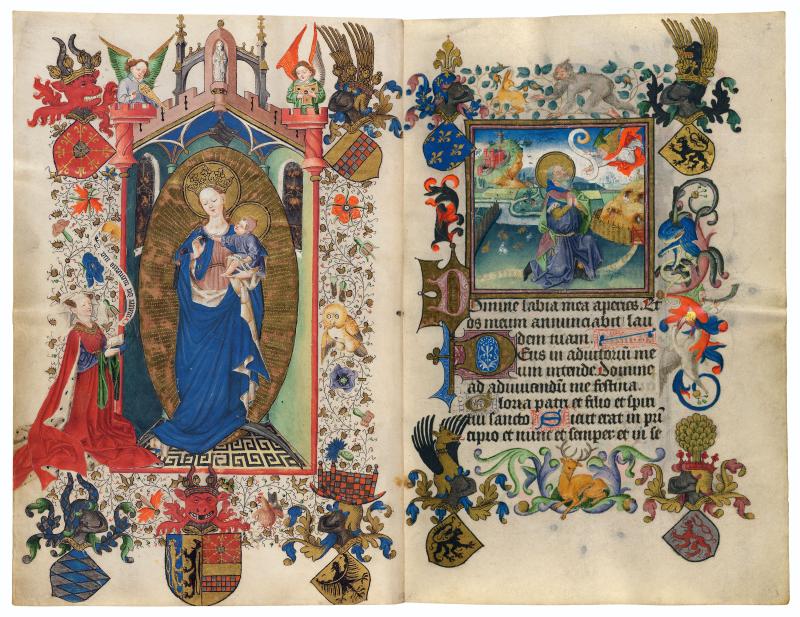 Domine labia mea aperies. Et
os meum annunciabit lau
dem tuam.
Deus in adiutoriū me
um intende Domine
ad adiuvandum me festina.
Gloria patri et filio et spiri
tui sancto Sicut erat in prī
cipio et nunc et semper et in se